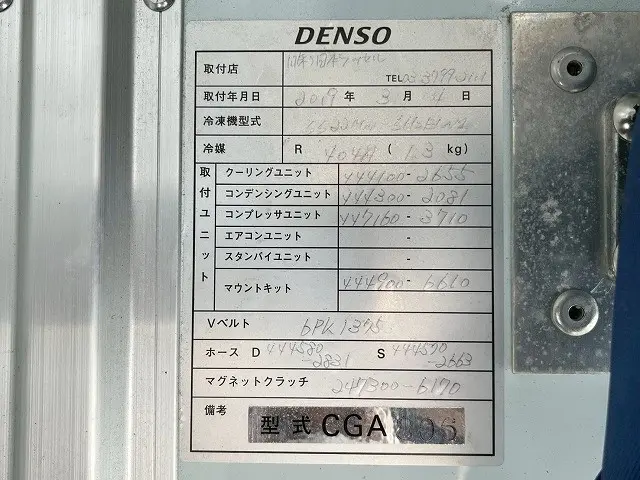 DENSO
取付店
TEL 03
取付年月日 2019 年 3 月 日
冷凍機型式
冷媒 R 404A ( 1.3 kg)
取付ユニット
クーリングユニット 444100-2655
コンデンシングユニット 444300-2081
コンプレッサユニット 447160-3710
エアコンユニット -
スタンバイユニット -
マウントキット 444900-6610
Vベルト 6PK1375
ホース D 444580-2831 S 444590-2663
マグネットクラッチ 247300-6170
備考
型式 CGA